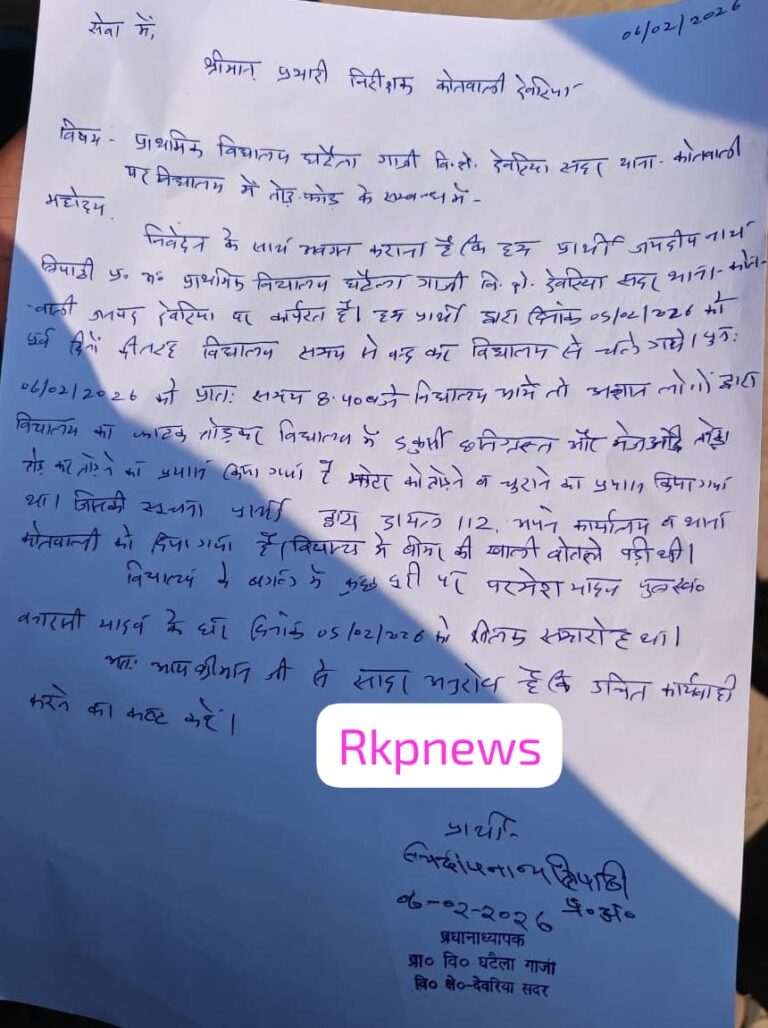 06/02/2026
सेवा में,
श्रीमान् प्रभारी निरीक्षक कोतवाली देवरिया
विषय - प्राथमिक विद्यालय घटैला गाजी वि.क्षे. देवरिया सदर थाना - कोतवाली
पर विद्यालय में तोड़-फोड़ के सम्बन्ध में -
महोदय
निवेदन के साथ अवगत कराना है कि हम प्रार्थी जयदीप नाथ
त्रिपाठी प्र० अ० प्राथमिक विद्यालय घटैला गाजी वि. क्षे. देवरिया सदर थाना - कोत-
-वाली जनपद देवरिया पर कार्यरत है। हम प्रार्थी द्वारा दिनांक 05/02/2026 को
पूर्व दिनों की तरह विद्यालय समय से बन्द कर विद्यालय से चले गये। पुनः
06/02/2026 को प्रातः समय 8.40 बजे विद्यालय आये तो अज्ञात लोगों द्वारा
विद्यालय का फाटक तोड़कर विद्यालय में 5 कुर्सी क्षतिग्रस्त और मेज आदि
तोड़ का तोड़ने का प्रयास किया गया है मोटर को तोड़ने व चुराने का प्रयास किया गया
था। जिसकी सूचना प्रार्थी द्वारा डायल 112, अपने कार्यालय व थाना
कोतवाली को दिया गया है। विद्यालय में बीयर की खाली बोतले पड़ी थी।
विद्यालय के बगल में कुछ दूरी पर परमेश यादव पुत्र स्व०
यादव के घर दिनांक 05/02/2026 को तिलक समारोह था।
अतः आप श्रीमान जी से सादर अनुरोध है कि उचित कार्यवाही
करने का कष्ट करें।
Rkpnews
प्रार्थी -
जयदीप नाथ त्रिपाठी
06-02-2026 प्र०अ०
प्रधानाध्यापक
प्रा० वि० घटैला गाजी
वि० क्षे०-देवरिया सदर